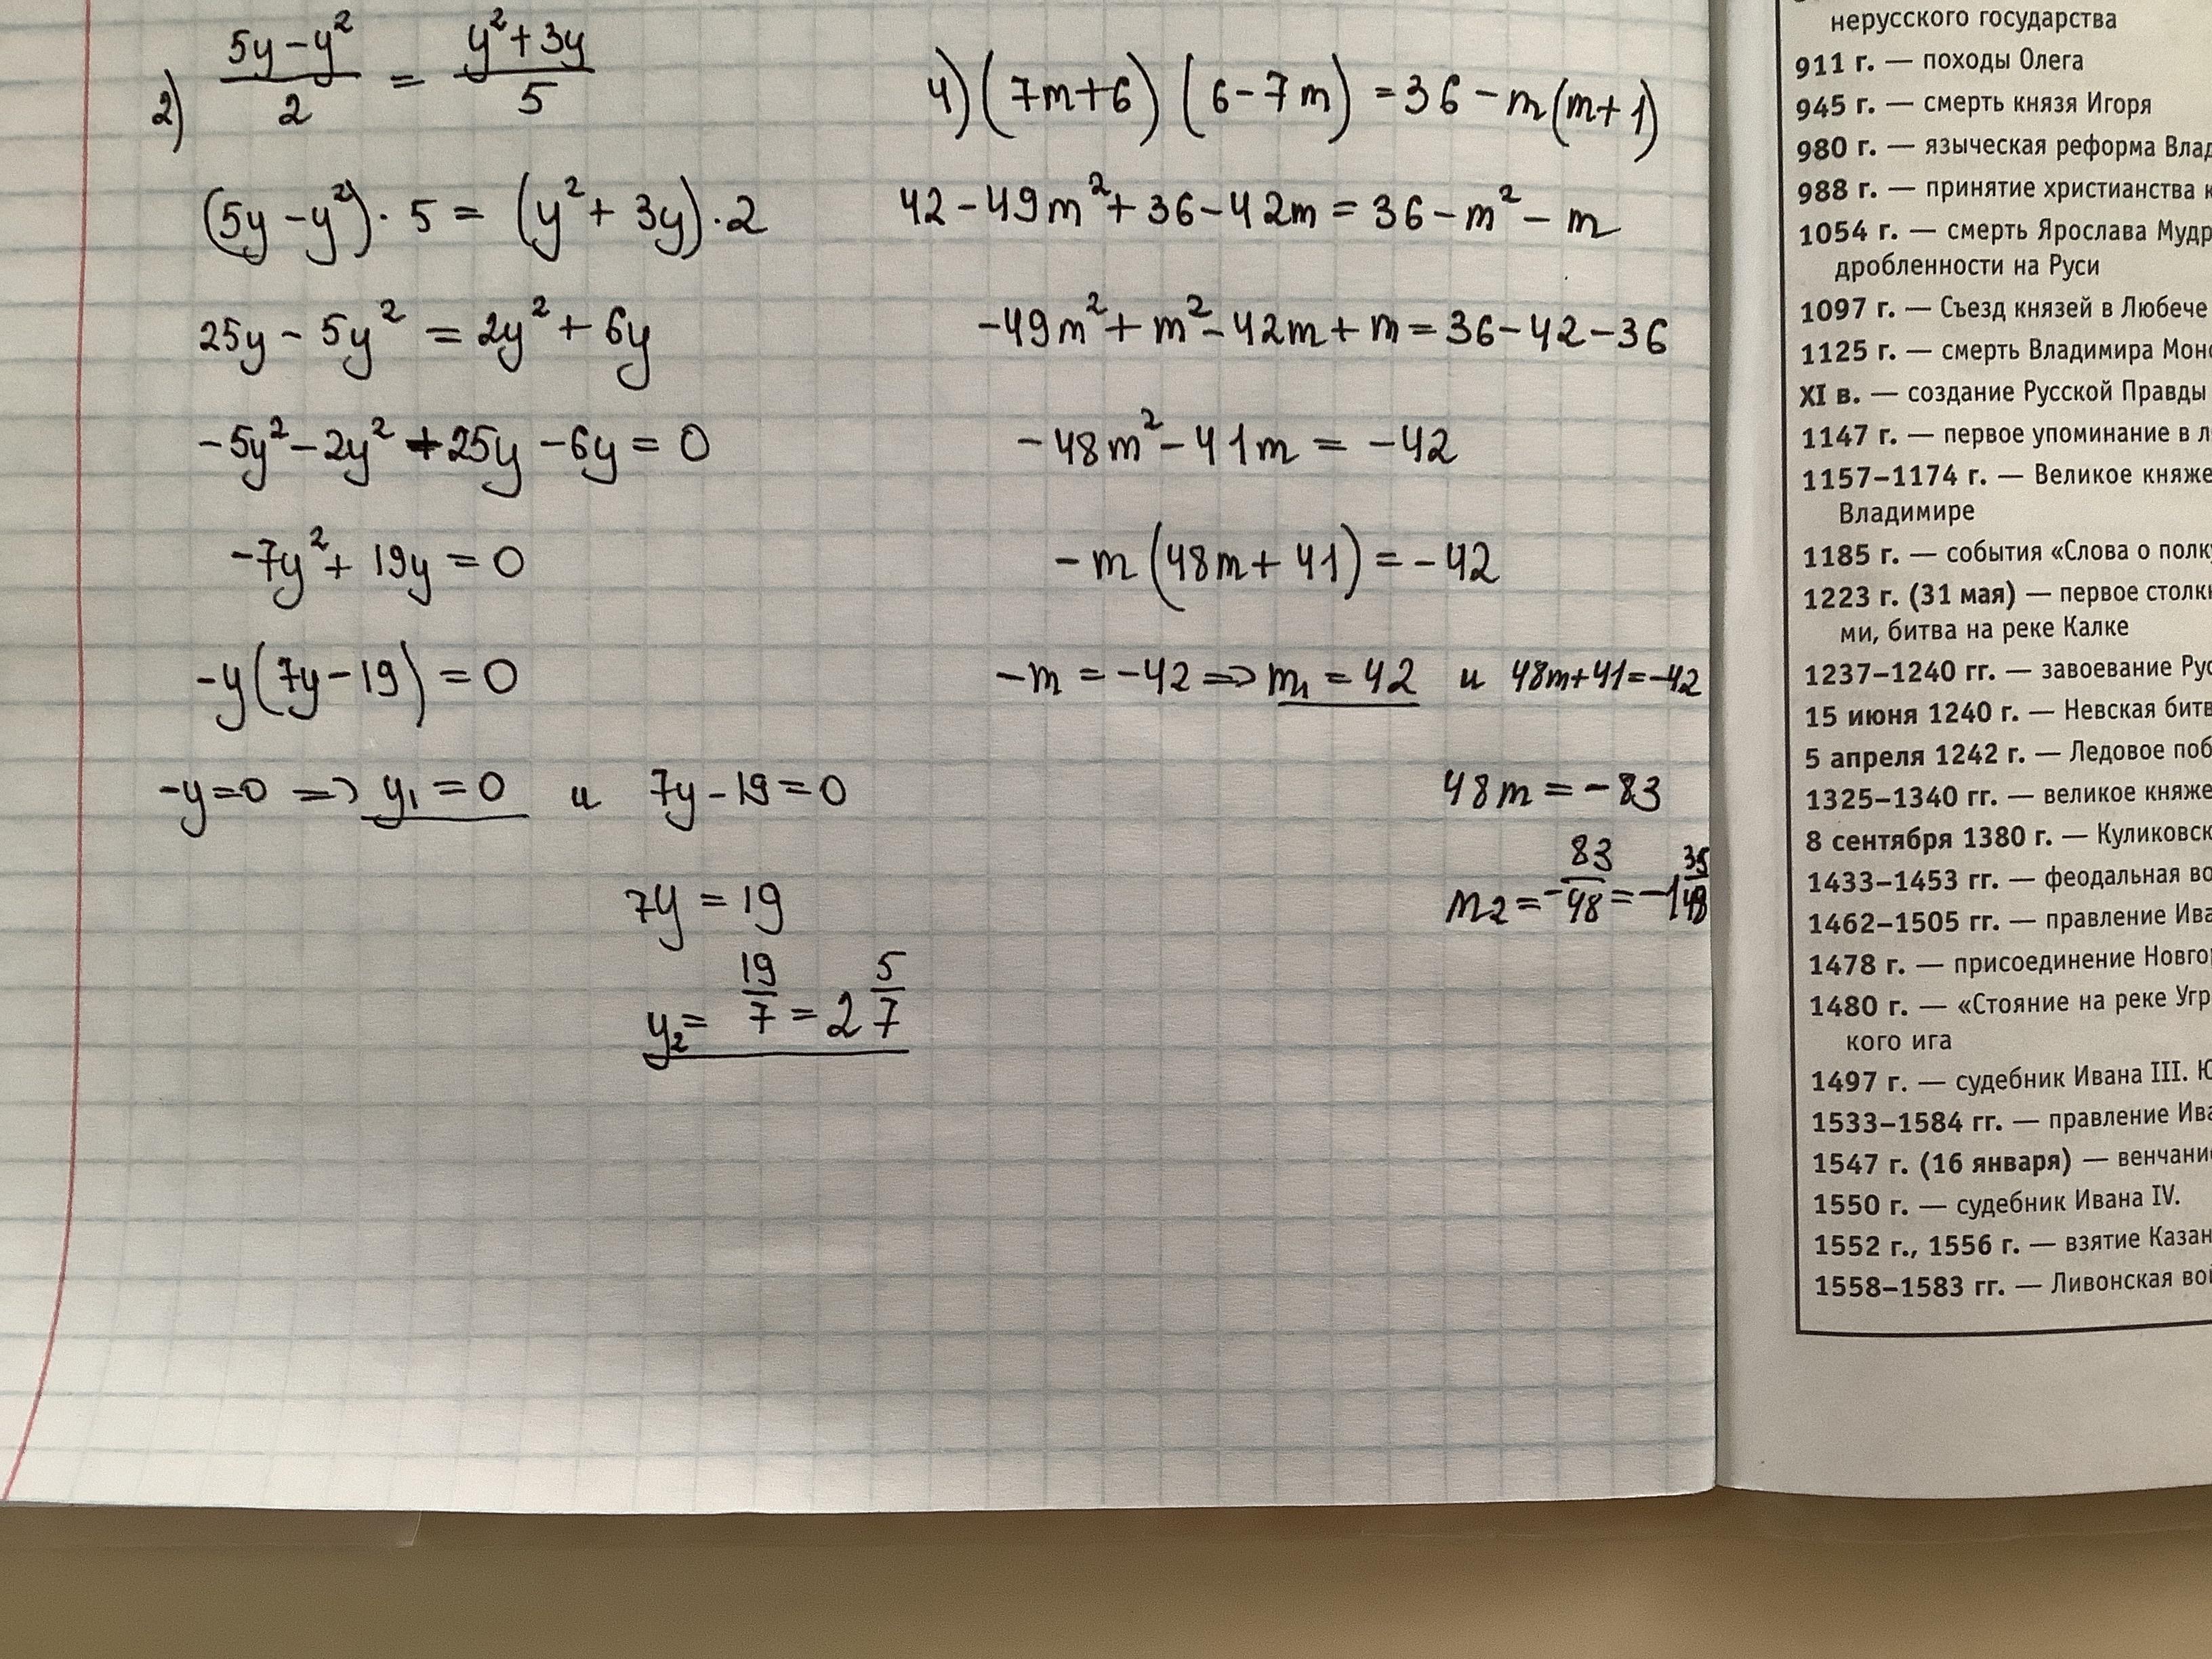 2) (5y - y²)/2 = (y² + 3y)/5
(5y - y²) · 5 = (y² + 3y) · 2
25y - 5y² = 2y² + 6y
-5y² - 2y² + 25y - 6y = 0
-7y² + 19y = 0
-y(7y - 19) = 0
-y = 0 => y₁ = 0 и 7y - 19 = 0
7y = 19
y₂ = 19/7 = 2 5/7
4) (7m + 6) (6 - 7m) = 36 - m(m + 1)
42 - 49m² + 36 - 42m = 36 - m² - m
-49m² + m² - 42m + m = 36 - 42 - 36
-48m² - 41m = -42
-m(48m + 41) = -42
-m = -42 => m₁ = 42 и 48m + 41 = -42
48m = -83
m₂ = -83/48 = -1 35/48
нерусского государства
911 г. — походы Олега
945 г. — смерть князя Игоря
980 г. — языческая реформа Влад
988 г. — принятие христианства к
1054 г. — смерть Ярослава Мудр
дробленности на Руси
1097 г. — Съезд князей в Любече
1125 г. — смерть Владимира Моно
XI в. — создание Русской Правды
1147 г. — первое упоминание в л
1157–1174 г. — Великое княже
Владимире
1185 г. — события «Слова о полку
1223 г. (31 мая) — первое столкн
ми, битва на реке Калке
1237–1240 гг. — завоевание Рус
15 июня 1240 г. — Невская битв
5 апреля 1242 г. — Ледовое поб
1325–1340 гг. — великое княже
8 сентября 1380 г. — Куликовск
1433–1453 гг. — феодальная во
1462–1505 гг. — правление Ива
1478 г. — присоединение Новго
1480 г. — «Стояние на реке Угр
кого ига
1497 г. — судебник Ивана III. Ю
1533–1584 гг. — правление Ива
1547 г. (16 января) — венчани
1550 г. — судебник Ивана IV.
1552 г., 1556 г. — взятие Казан
1558–1583 гг. — Ливонская вой